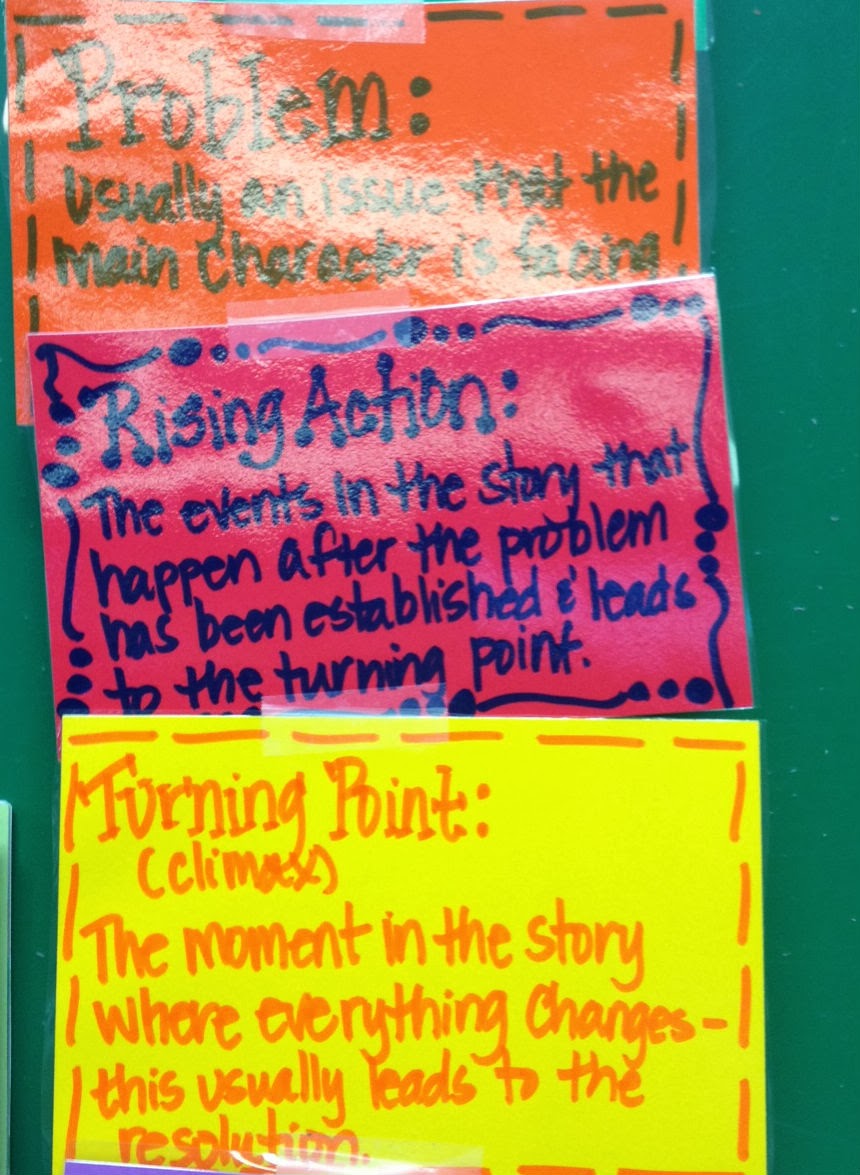 Problem:
Usually an issue that the
main character is facing
Rising Action:
The events in the story that
happen after the problem
has been established & leads
to the turning point.
Turning Point:
(climax)
The moment in the story
where everything changes-
this usually leads to the
resolution.